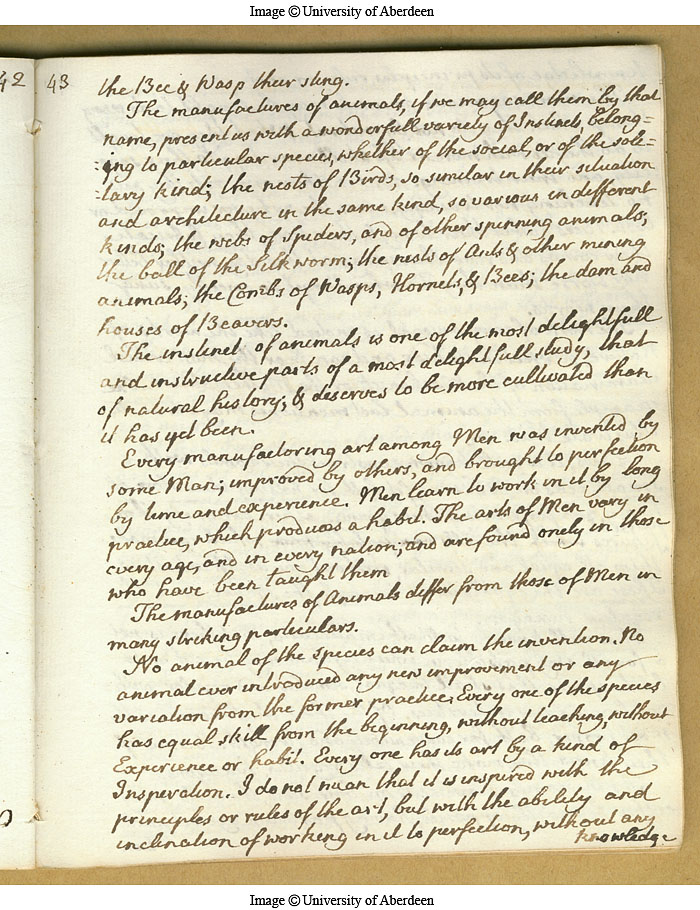 Image © University of Aberdeen
42
43
the Bee & Wasp their sting.
The manufactures of animals, if we may call them by that
name, present us with a wonderfull variety of Instincts, belong=
=ing to particular species, whether of the social, or of the soli=
=tary kind; the nests of Birds, so similar in their situation
and architecture in the same kind, so various in different
kinds; the webs of Spiders, and of other spinning animals;
the ball of the Silkworm; the nests of Ants & other mining
animals; the Combs of Wasps, Hornets, & Bees; the dam and
houses of Beavers.
The instinct of animals is one of the most delightfull
and instructive parts of a most delightfull study, that
of natural history; & deserves to be more cultivated than
it has yet been.
Every manufactoring art among Men was invented by
some Man; improved by others, and brought to perfection
by time and experience. Men learn to work in it by long
practice, which produces a habit. The arts of Men vary in
every age, and in every nation, and are found onely in those
who have been taught them
The manufactures of Animals differ from those of Men in
many striking particulars.
No animal of the species can claim the invention. No
animal ever introduced any new improvement or any
variation from the former practice. Every one of the species
has equal skill from the beginning, without teaching, without
Experience or habit. Every one has its art by a kind of
Inspiration. I do not mean that it is inspired with the
principles or rules of the art, but with the ability and
inclination of working in it to perfection, without any
knowledge
Image © University of Aberdeen